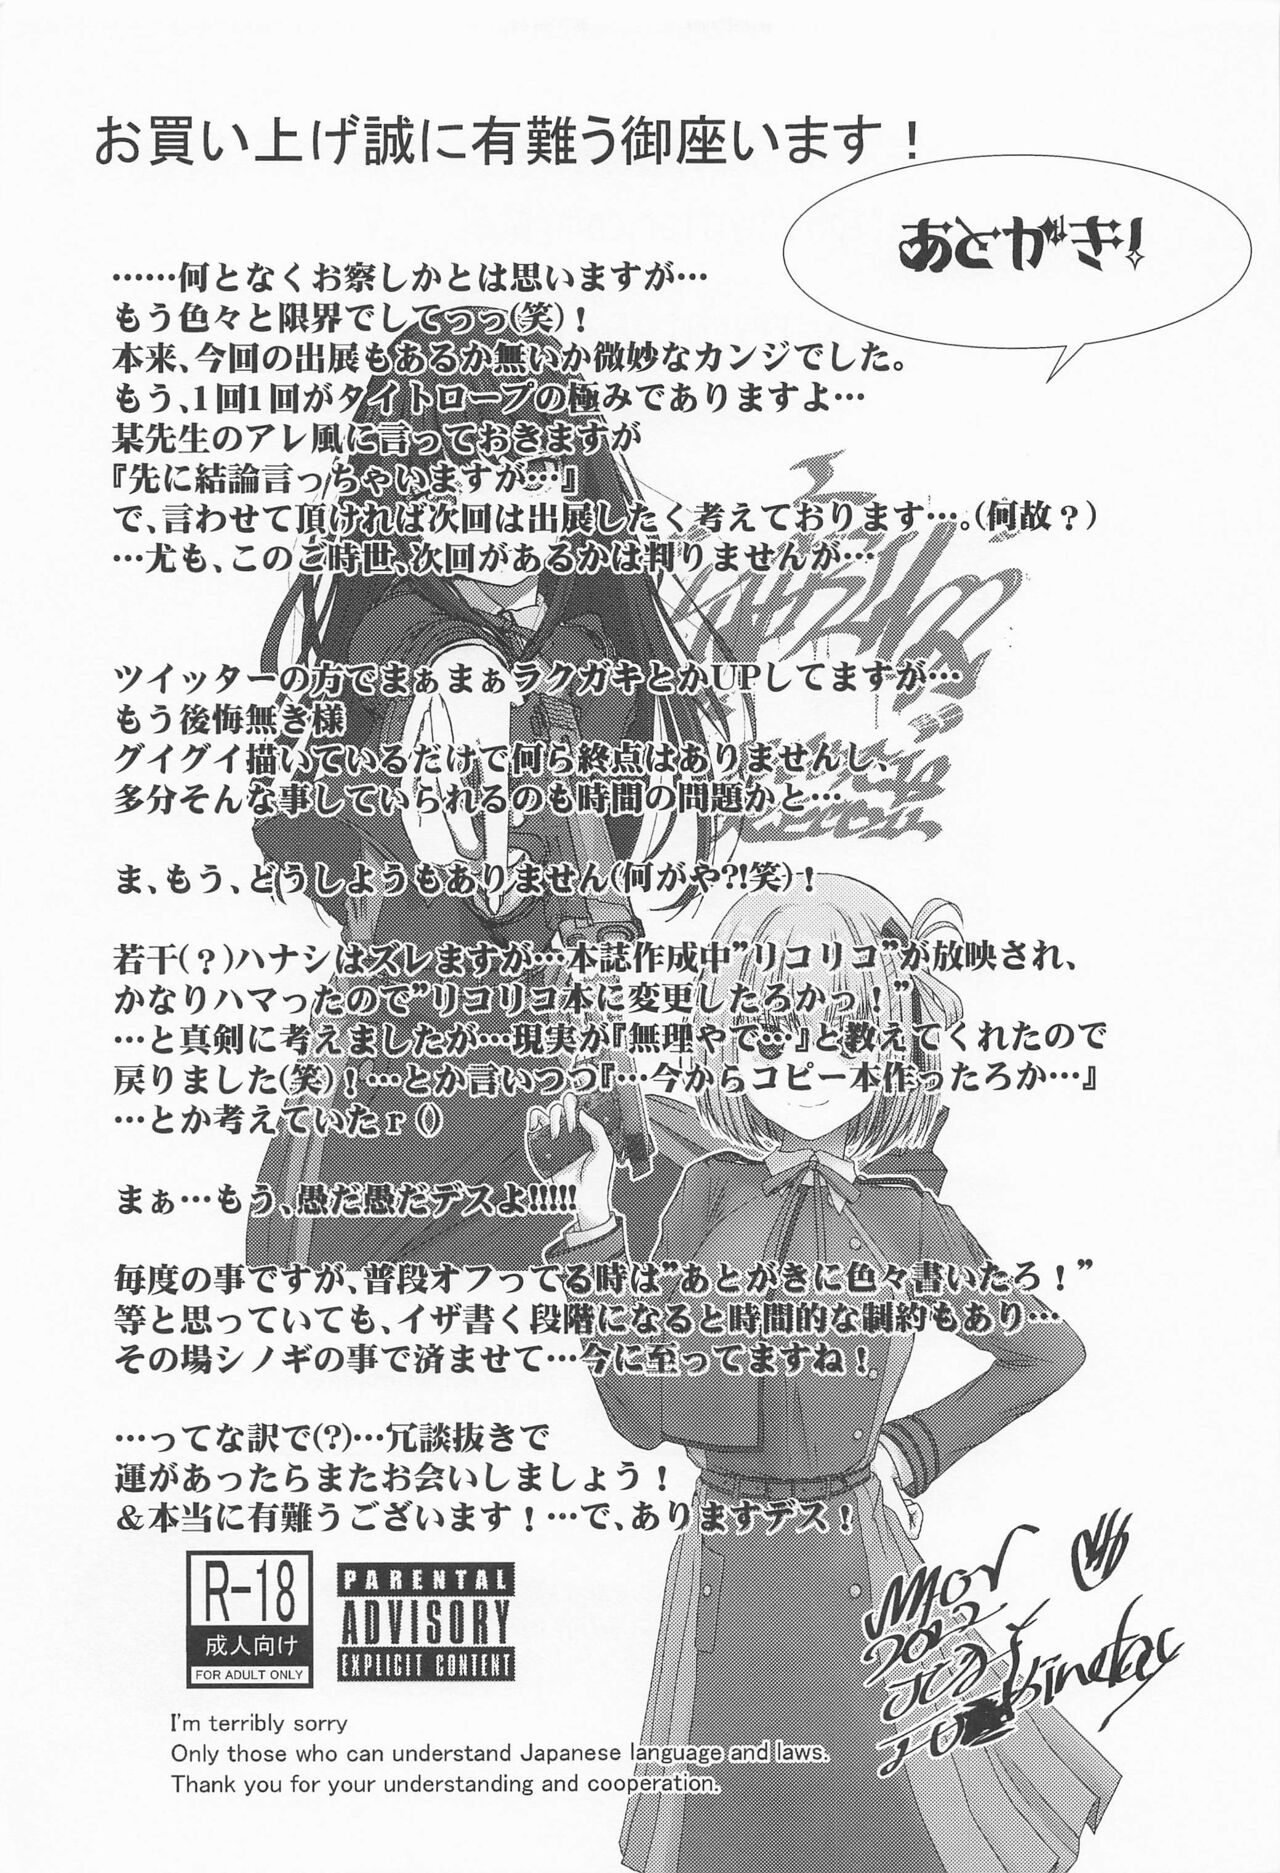 お買い上げ誠に有難う御座います！
あとがき！
……何となくお察しかとは思いますが…
もう色々と限界でしてっっ(笑)！
本来、今回の出展もあるか無いか微妙なカンジでした。
もう、1回1回がタイトロープの極みでありますよ…
某先生のアレ風に言っておきますが
『先に結論言っちゃいますが…』
で、言わせて頂ければ次回は出展したく考えております…。(何故？)
…尤も、このご時世、次回があるかは判りませんが…
ツイッターの方でまぁまぁラクガキとかUPしてますが…
もう後悔無き様
グイグイ描いているだけで何ら終点はありませんし、
多分そんな事していられるのも時間の問題かと…
ま、もう、どうしようもありません(何がや?!笑)！
若干(？)ハナシはズレますが…本誌作成中”リコリコ”が放映され、
かなりハマったので”リコリコ本に変更したろかっ！”
…と真剣に考えましたが…現実が『無理やで…』と教えてくれたので
戻りました(笑)！…とか言いつつ『…今からコピー本作ったろか…』
…とか考えていたｒ()
まぁ…もう、愚だ愚だデスよ!!!!!
毎度の事ですが、普段オフってる時は”あとがきに色々書いたろ！”
等と思っていても、イザ書く段階になると時間的な制約もあり…
その場シノギの事で済ませて…今に至ってますね！
…ってな訳で(?)…冗談抜きで
運があったらまたお会いしましょう！
＆本当に有難うございます！…で、ありますデス！
R-18
成人向け
FOR ADULT ONLY
PARENTAL
ADVISORY
EXPLICIT CONTENT
I'm terribly sorry
Only those who can understand Japanese language and laws.
Thank you for your understanding and cooperation.